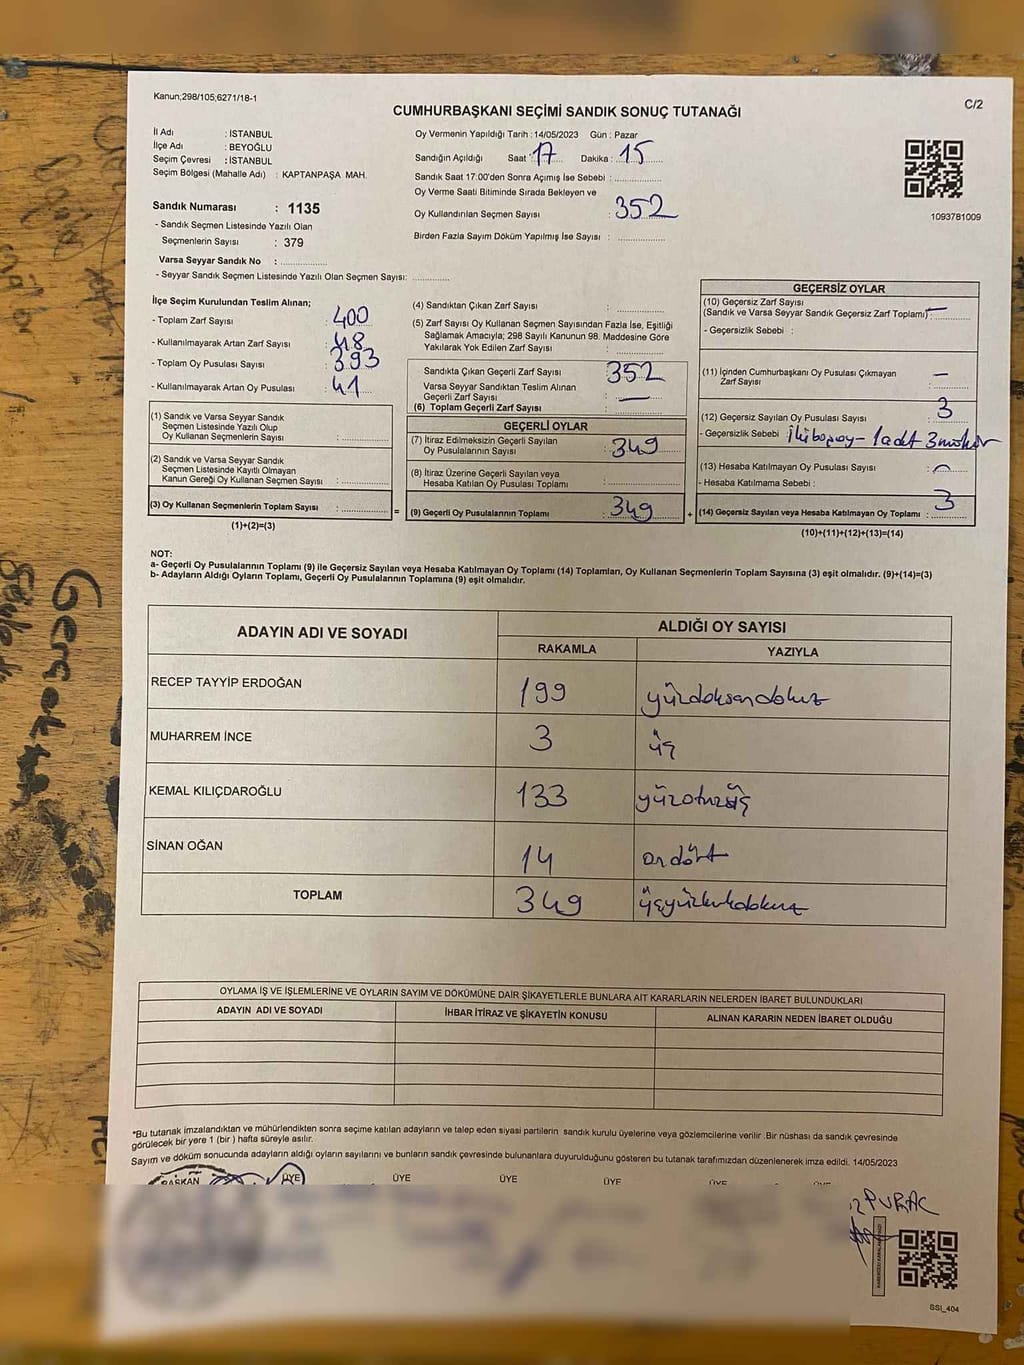 Kanun;298/105;6271/18-1
C/2
CUMHURBAŞKANI SEÇİMİ SANDIK SONUÇ TUTANAĞI
İl Adı : İSTANBUL
İlçe Adı : BEYOĞLU
Seçim Çevresi : İSTANBUL
Seçim Bölgesi (Mahalle Adı) : KAPTANPAŞA MAH.
Sandık Numarası : 1135
- Sandık Seçmen Listesinde Yazılı Olan
Seçmenlerin Sayısı : 379
Varsa Seyyar Sandık No :
- Seyyar Sandık Seçmen Listesinde Yazılı Olan Seçmen Sayısı:
Oy Vermenin Yapıldığı Tarih : 14/05/2023 Gün : Pazar
Sandığın Açıldığı Saat : 17 Dakika : 15
Sandık Saat 17:00'den Sonra Açılmış İse Sebebi :
Oy Verme Saati Bitiminde Sırada Bekleyen ve
Oy Kullandırılan Seçmen Sayısı : 352
Birden Fazla Sayım Döküm Yapılmış İse Sayısı :
1093781009
İlçe Seçim Kurulundan Teslim Alınan;
- Toplam Zarf Sayısı : 400
- Kullanılmayarak Artan Zarf Sayısı : 48
- Toplam Oy Pusulası Sayısı : 393
- Kullanılmayarak Artan Oy Pusulası : 41
(1) Sandık ve Varsa Seyyar Sandık
Seçmen Listesinde Yazılı Olup
Oy Kullanan Seçmenlerin Sayısı :
(2) Sandık ve Varsa Seyyar Sandık
Seçmen Listesinde Kayıtlı Olmayan
Kanun Gereği Oy Kullanan Seçmen Sayısı :
(3) Oy Kullanan Seçmenlerin Toplam Sayısı :
(1)+(2)=(3)
(4) Sandıktan Çıkan Zarf Sayısı :
(5) Zarf Sayısı Oy Kullanan Seçmen Sayısından Fazla İse, Eşitliği
Sağlamak Amacıyla; 298 Sayılı Kanunun 98. Maddesine Göre
Yakılarak Yok Edilen Zarf Sayısı :
Sandıkta Çıkan Geçerli Zarf Sayısı : 352
Varsa Seyyar Sandıktan Teslim Alınan
Geçerli Zarf Sayısı : —
(6) Toplam Geçerli Zarf Sayısı :
GEÇERLİ OYLAR
(7) İtiraz Edilmeksizin Geçerli Sayılan
Oy Pusulalarının Sayısı : 349
(8) İtiraz Üzerine Geçerli Sayılan veya
Hesaba Katılan Oy Pusulası Toplamı :
= (9) Geçerli Oy Pusulalarının Toplamı : 349
GEÇERSİZ OYLAR
(10) Geçersiz Zarf Sayısı
(Sandık ve Varsa Seyyar Sandık Geçersiz Zarf Toplamı) : —
- Geçersizlik Sebebi :
(11) İçinden Cumhurbaşkanı Oy Pusulası Çıkmayan
Zarf Sayısı : —
(12) Geçersiz Sayılan Oy Pusulası Sayısı : 3
- Geçersizlik Sebebi :
(13) Hesaba Katılmayan Oy Pusulası Sayısı : —
- Hesaba Katılmama Sebebi :
+ (14) Geçersiz Sayılan veya Hesaba Katılmayan Oy Toplamı : 3
(10)+(11)+(12)+(13)=(14)
NOT:
a- Geçerli Oy Pusulalarının Toplamı (9) ile Geçersiz Sayılan veya Hesaba Katılmayan Oy Toplamı (14) Toplamları, Oy Kullanan Seçmenlerin Toplam Sayısına (3) eşit olmalıdır. (9)+(14)=(3)
b- Adayların Aldığı Oyların Toplamı, Geçerli Oy Pusulalarının Toplamına (9) eşit olmalıdır.
ADAYIN ADI VE SOYADI
ALDIĞI OY SAYISI
RAKAMLA YAZIYLA
RECEP TAYYİP ERDOĞAN 199 yüzdoksandokuz
MUHARREM İNCE 3 üç
KEMAL KILIÇDAROĞLU 133 yüzotuzüç
SİNAN OĞAN 14 ondört
TOPLAM 349 üçyüzkırkdokuz
OYLAMA İŞ VE İŞLEMLERİNE VE OYLARIN SAYIM VE DÖKÜMÜNE DAİR ŞİKAYETLERLE BUNLARA AİT KARARLARIN NELERDEN İBARET BULUNDUKLARI
ADAYIN ADI VE SOYADI İHBAR İTİRAZ VE ŞİKAYETİN KONUSU ALINAN KARARIN NEDEN İBARET OLDUĞU
*Bu tutanak imzalandıktan ve mühürlendikten sonra seçime katılan adayların ve talep eden siyasi partilerin sandık kurulu üyelerine veya gözlemcilerine verilir .Bir nüshası da sandık çevresinde
görülecek bir yere 1 (bir ) hafta süreyle asılır.
Sayım ve döküm sonucunda adayların aldığı oyların sayılarını ve bunların sandık çevresinde bulunanlara duyurulduğunu gösteren bu tutanak tarafımızdan düzenlenerek imza edildi. 14/05/2023
BAŞKAN ÜYE ÜYE ÜYE ÜYE ÜYE ÜYE
SSI_404